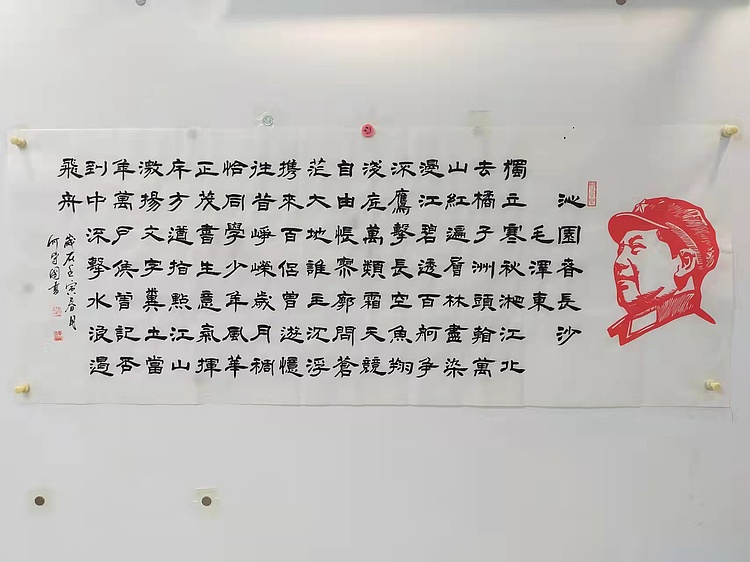 沁園春長沙
毛澤東
獨立寒秋湘江北
去橘子洲頭看萬
山紅遍層林盡染
漫江碧透百舸爭
流鷹擊長空魚翔
淺底萬類霜天競
自由悵寥廓問蒼
茫大地誰主沈浮
攜來百侶曾遊憶
往昔崢嶸歲月稠
恰同學少年風華
正茂書生意氣揮
斥方遒指點江山
激揚文字糞土當
年萬戶侯曾記否
到中流擊水浪遏
飛舟
歲在壬寅春月
何國書